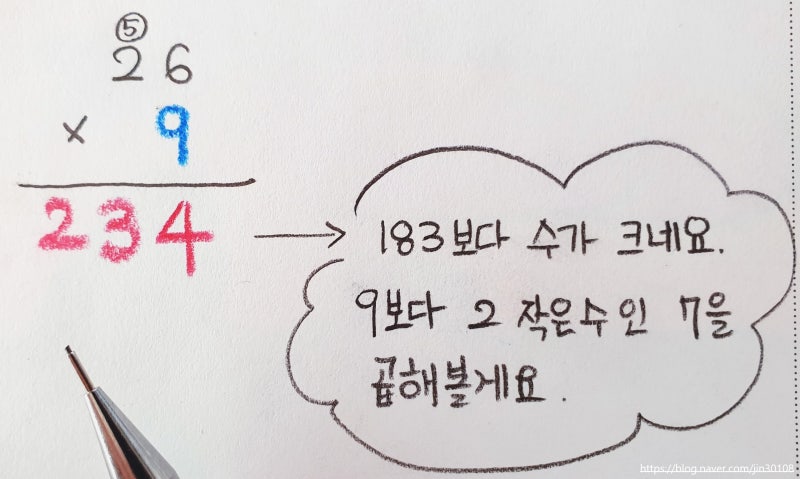 ⑤
26
× 9
234 → 183보다 수가 크네요.
9보다 2 작은수인 7을
곱해볼게요.
https://blog.naver.com/jin30108